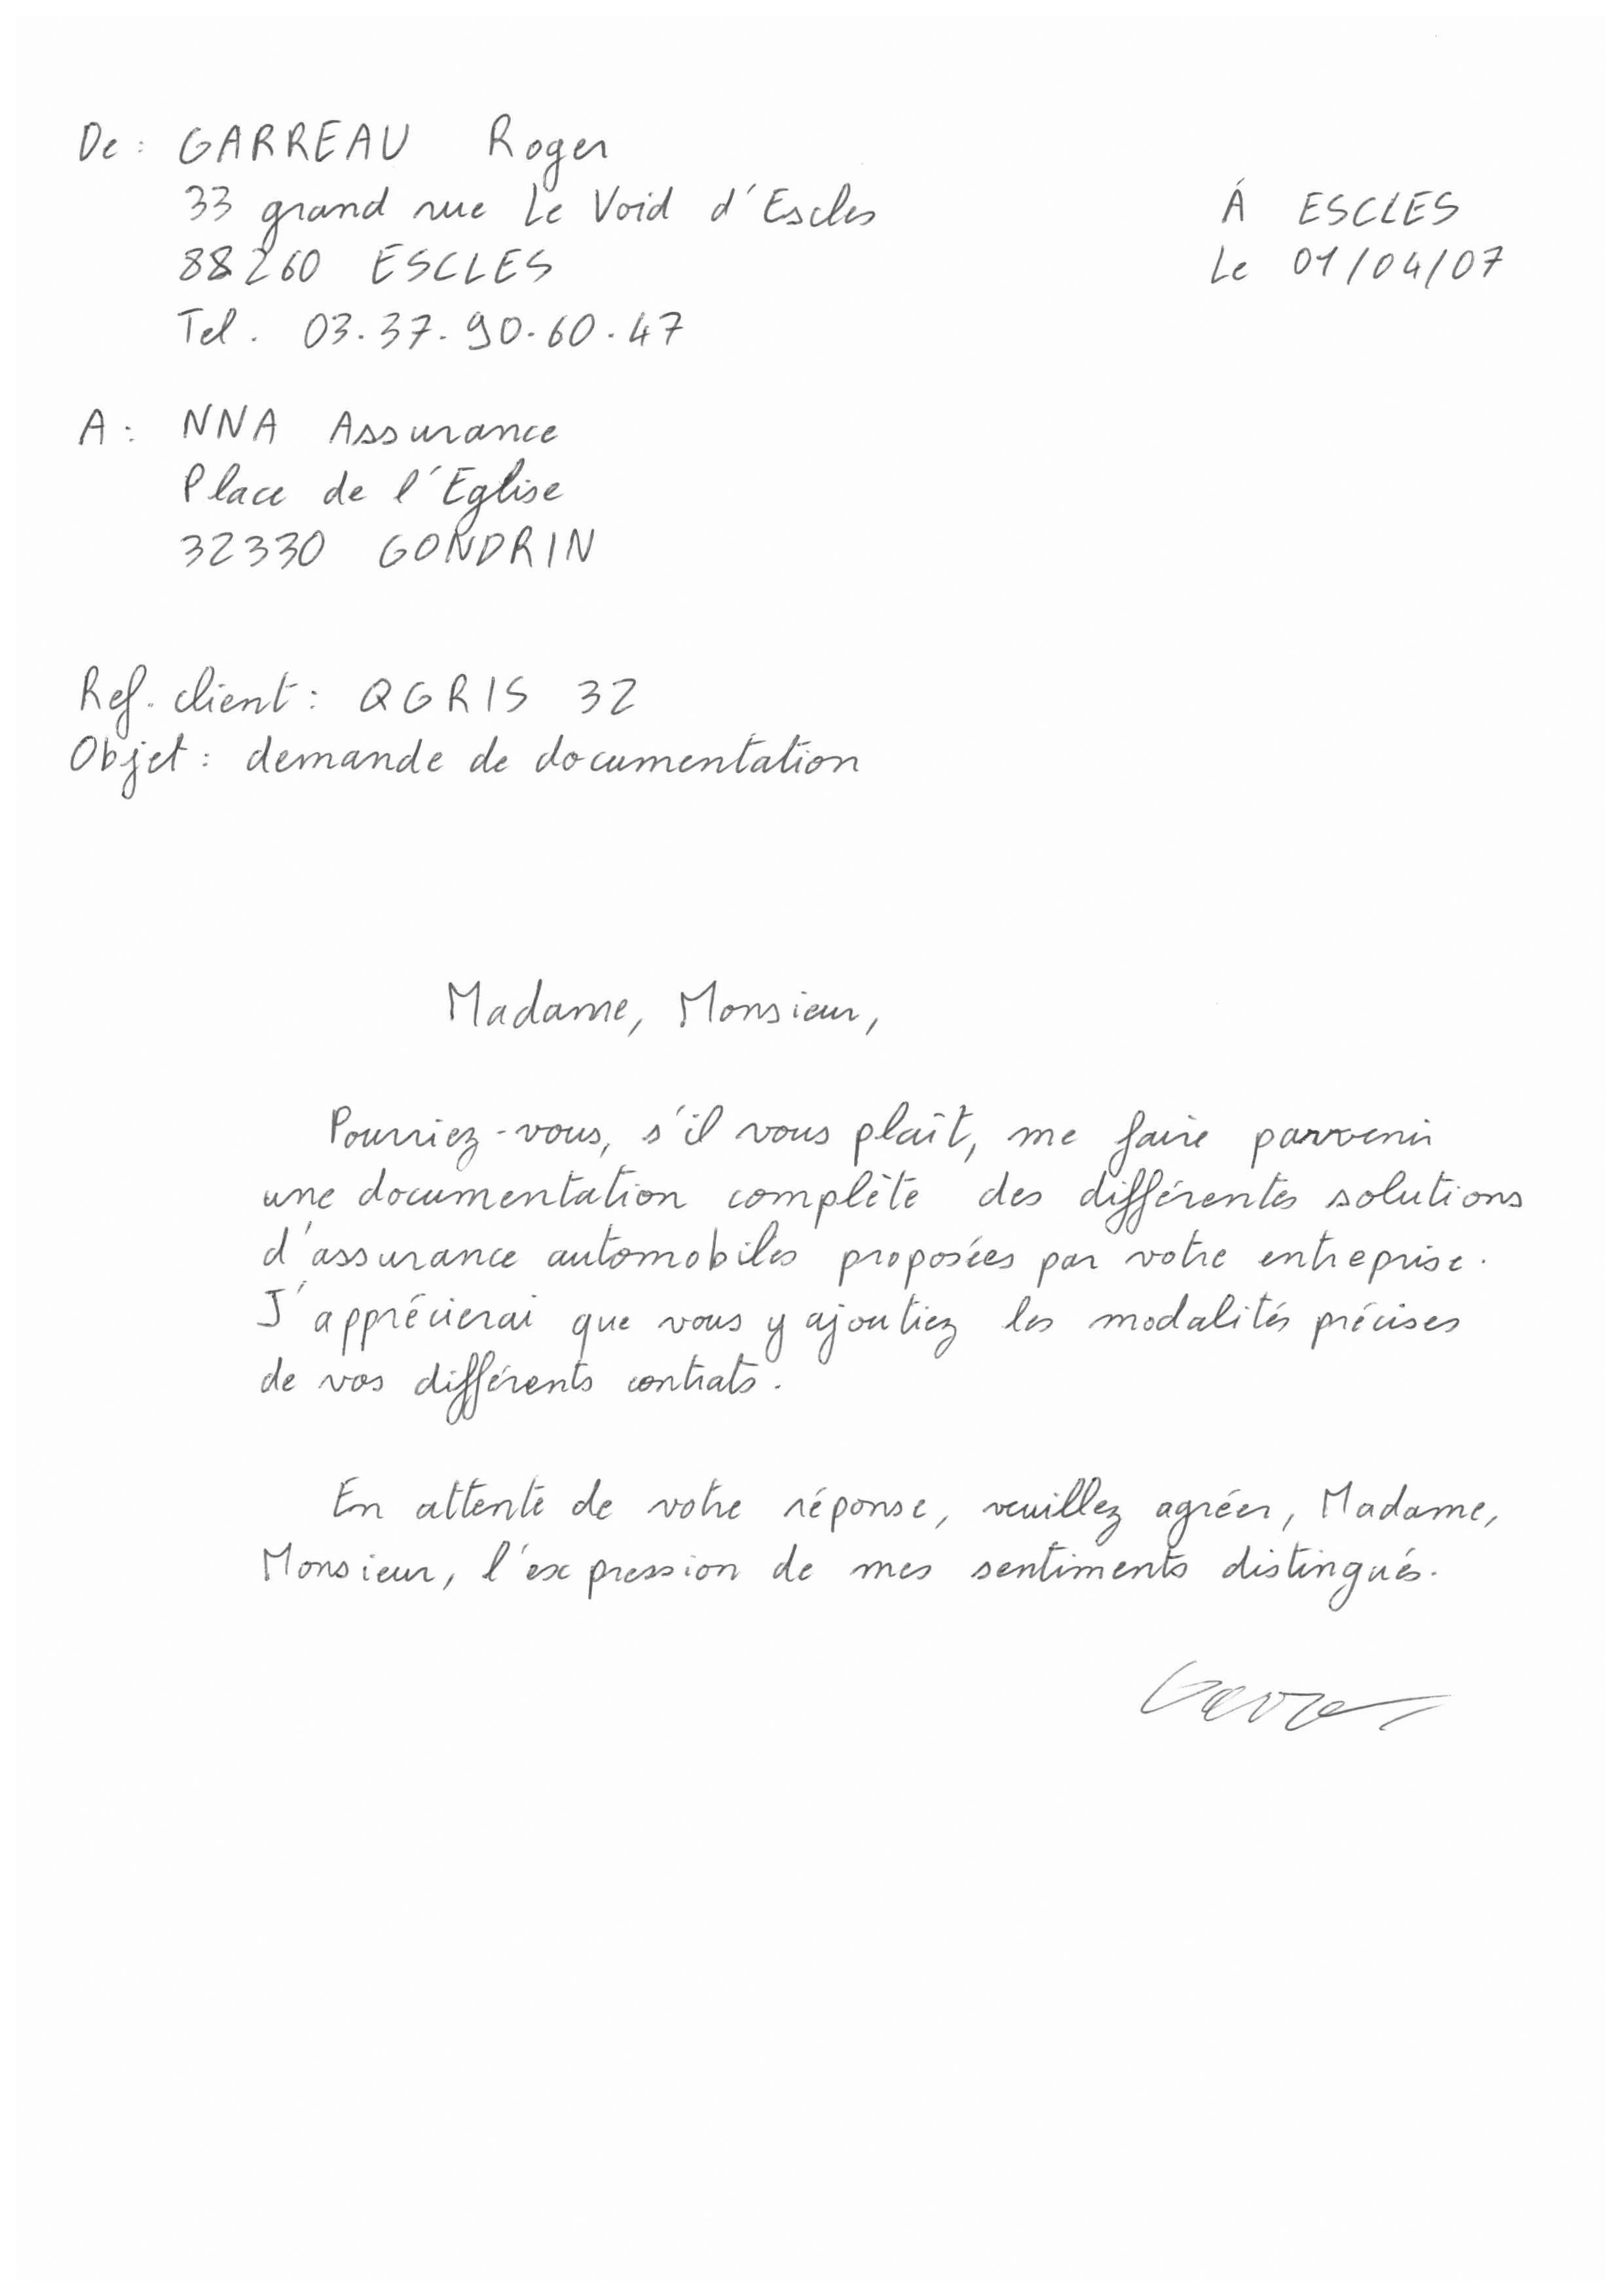 De : GARREAU Roger
33 grand rue Le Void d'Escles
88260 ESCLES
Tel. 03.37.90.60.47
Á ESCLES
Le 01/04/07
A : NNA Assurance
Place de l'Eglise
32330 GONDRIN
Ref. client : QGRIS 32
Objet : demande de documentation
Madame, Monsieur,
Pourriez-vous, s'il vous plaît, me faire parvenir
une documentation complète des différentes solutions
d'assurance automobiles proposées par votre entreprise.
J'apprécierai que vous y ajoutiez les modalités précises
de vos différents contrats.
En attente de votre réponse, veuillez agréer, Madame,
Monsieur, l'expression de mes sentiments distingués.